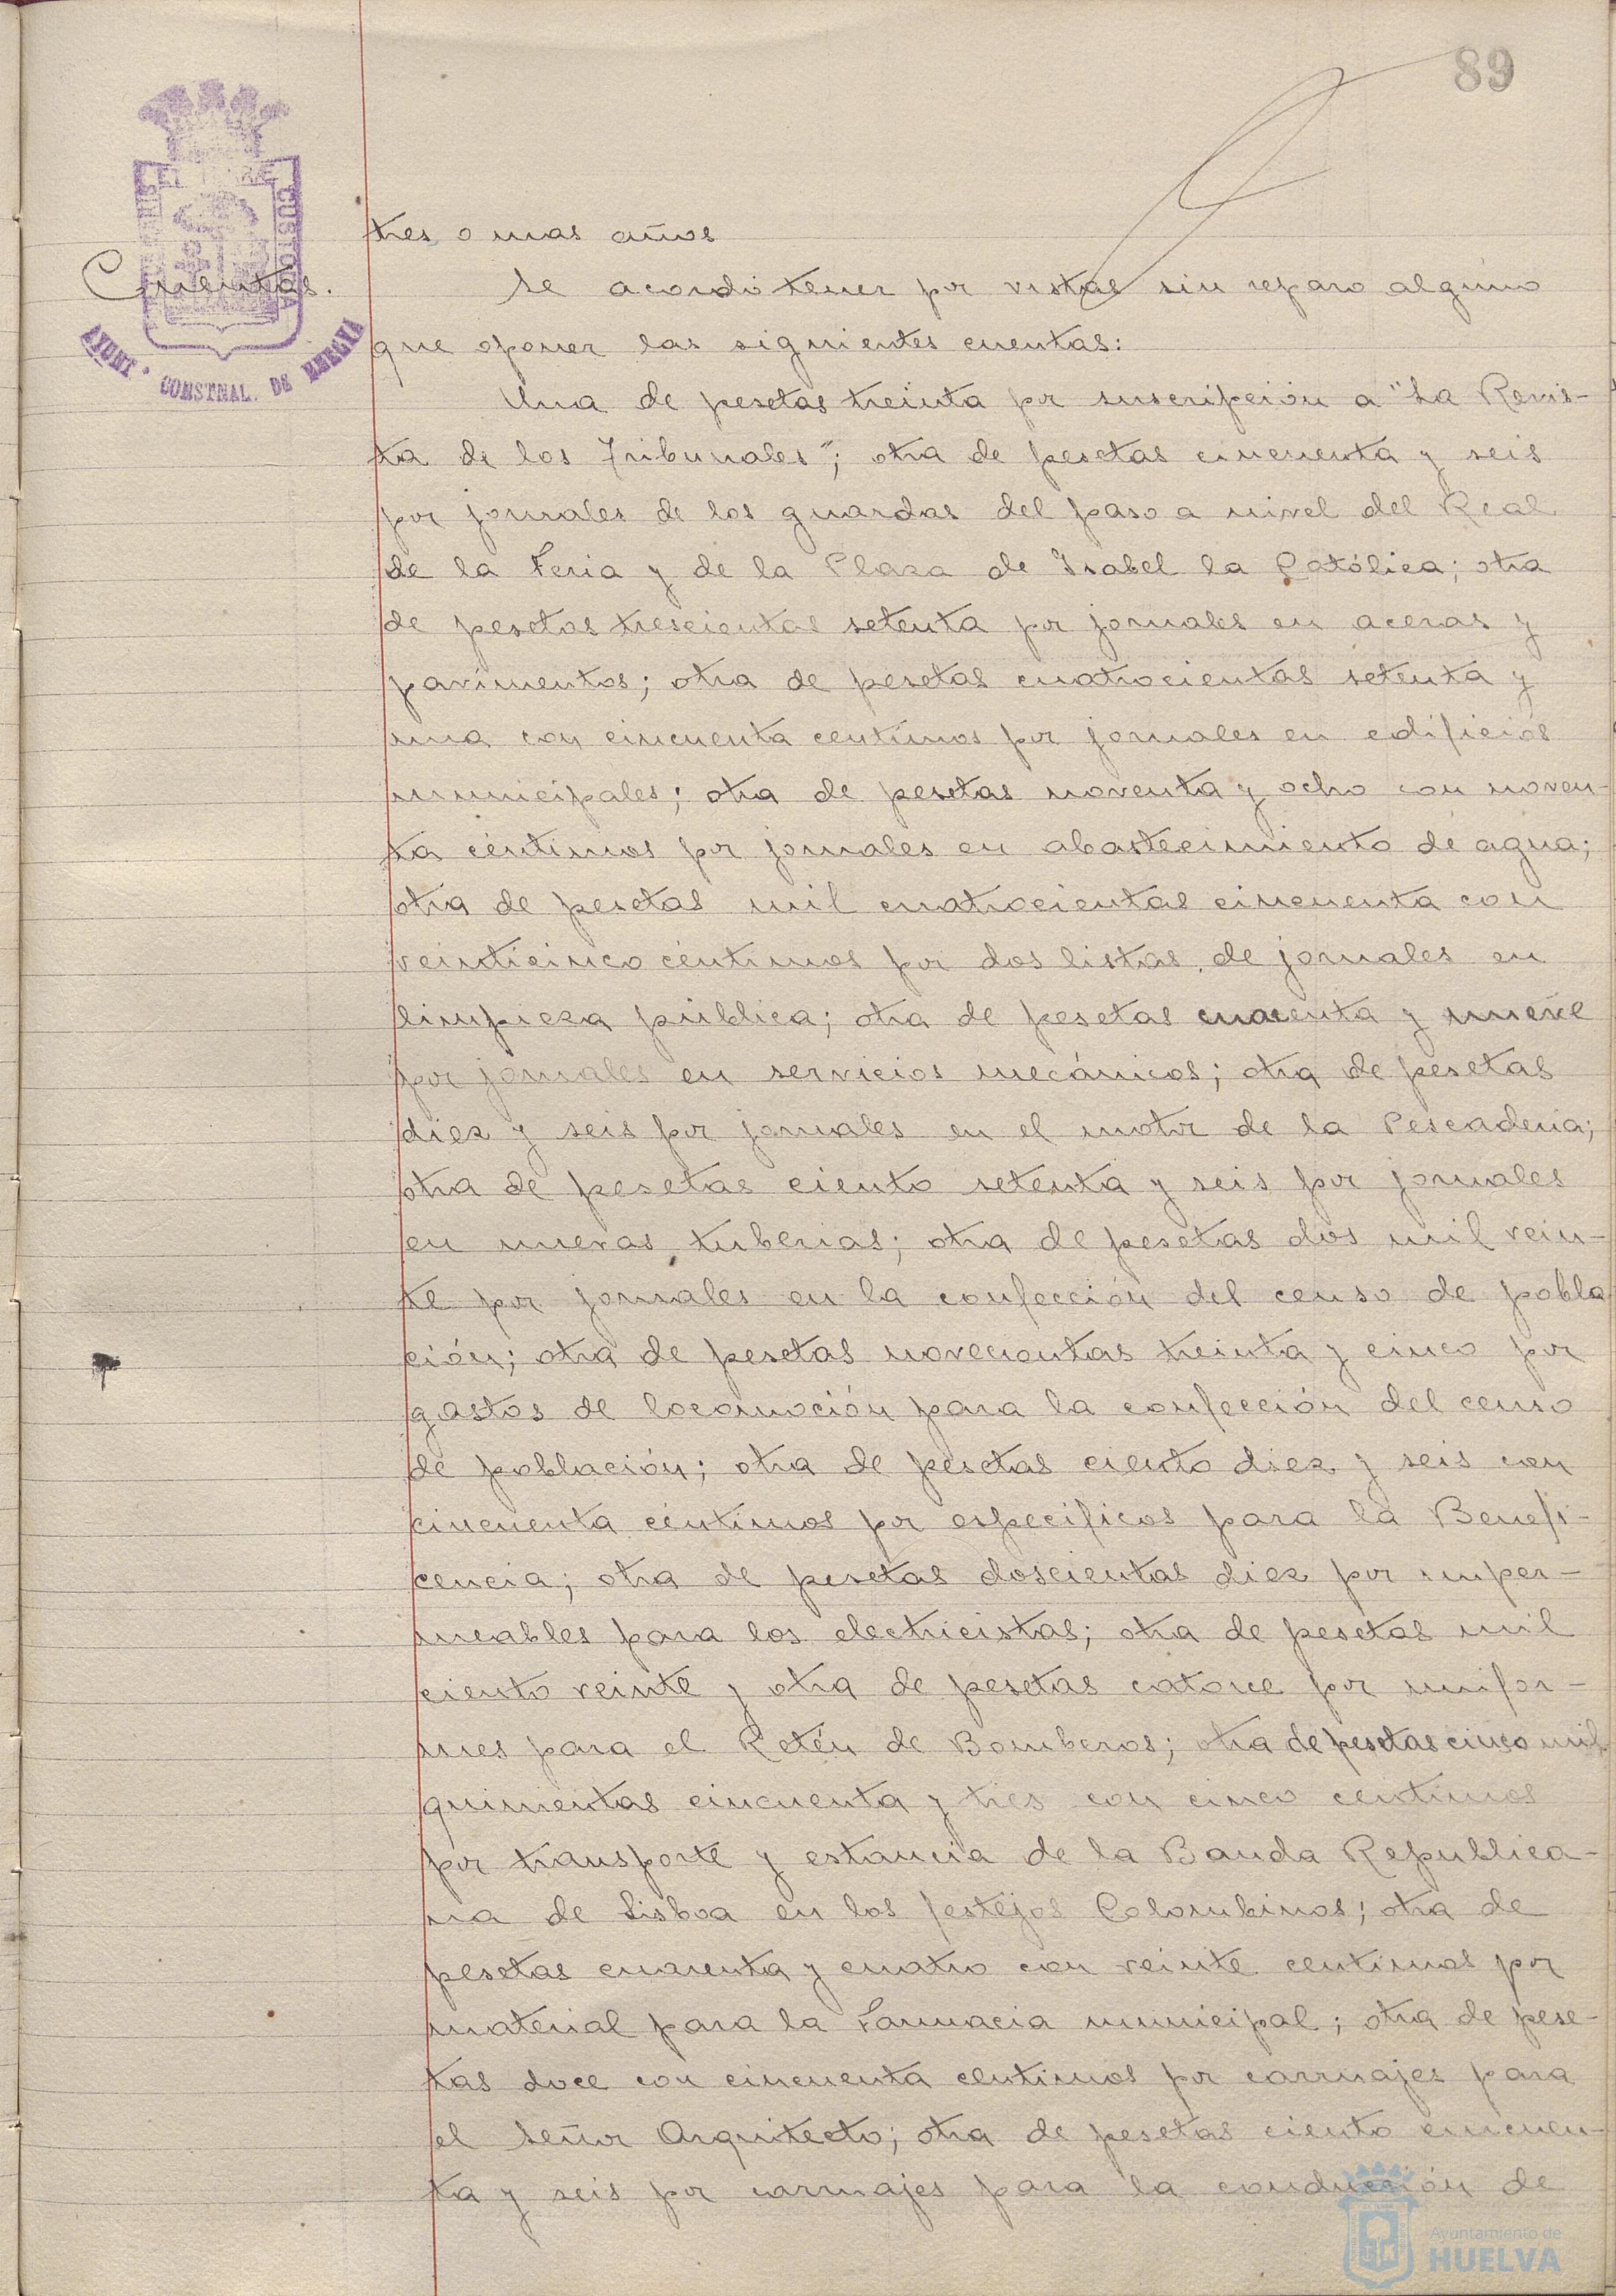 89
tres o mas años
Cuentas.
Se acordó tener por vistas sin reparo alguno
que oponer las siguientes cuentas:
Una de pesetas treinta por suscripción a "La Revis-
ta de los Tribunales"; otra de pesetas cincuenta y seis
por jornales de los guardas del paso a nivel del Real
de la Feria y de la Plaza de Isabel la Católica; otra
de pesetas trescientas setenta por jornales en aceras y
pavimentos; otra de pesetas cuatrocientas setenta y
una con cincuenta centimos por jornales en edificios
municipales; otra de pesetas noventa y ocho con noven-
ta céntimos por jornales en abastecimiento de agua;
otra de pesetas mil cuatrocientas cincuenta con
veinticinco céntimos por dos listas de jornales en
limpieza pública; otra de pesetas cuarenta y nueve
por jornales en servicios mecánicos; otra de pesetas
diez y seis por jornales en el motor de la Pescaderia;
otra de pesetas ciento setenta y seis por jornales
en nuevas tuberias; otra de pesetas dos mil vein-
te por jornales en la confección del censo de pobla
ción; otra de pesetas novecientas treinta y cinco por
gastos de locomoción para la confección del censo
de población; otra de pesetas ciento diez y seis con
cincuenta céntimos por especificos para la Benefi-
cencia; otra de pesetas doscientas diez por imper-
meables para los electricistas; otra de pesetas mil
ciento veinte y otra de pesetas catorce por unifor-
mes para el Retén de Bomberos; otra de pesetas cinco mil
quinientas cincuenta y tres con cinco centimos
por transporte y estancia de la Banda Republica-
na de Lisboa en los festejos Colombinos; otra de
pesetas cuarenta y cuatro con veinte centimos por
material para la Farmacia municipal; otra de pese-
tas doce con cincuenta centimos por carruajes para
el Señor Arquitecto; otra de pesetas ciento cincuen-
ta y seis por carruajes para la conducción de
CUSTODIA
AYUNT.º CONSTNAL. DE HUELVA
Ayuntamiento de
HUELVA